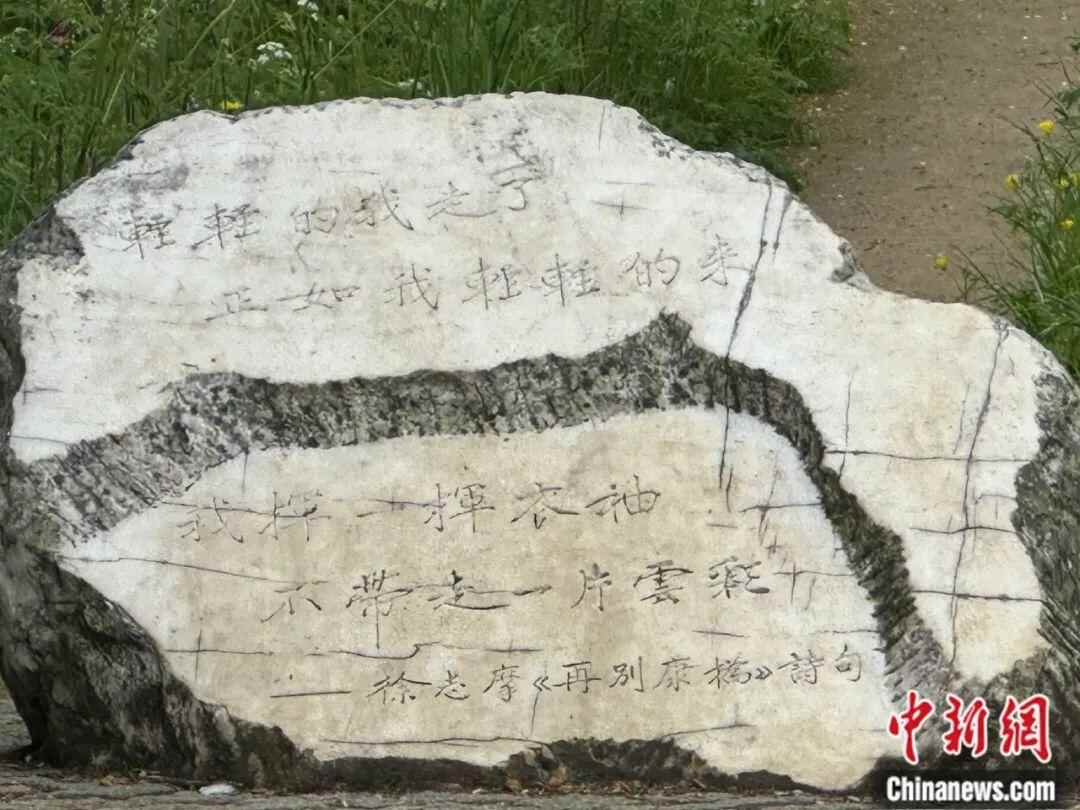 輕輕的我走了
正如我輕輕的来
我揮一揮衣袖
不帶走一片雲彩
——徐志摩《再別康橋》詩句
中新网
Chinanews.com